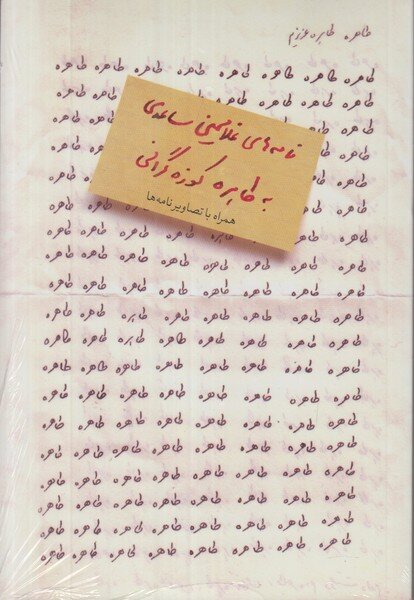 طاهره طاهره عزیزم
طاهره طاهره طاهره طاهره طاهره طاهره طاهره طاهره
طاهره طاهره طاهره طاهره طاهره طاهره
طاهره طاهره طاهره
طاهره طاهره
طاهره طاهره
طاهره طاهره
نامه‌های غلامحسین ساعدی
به طاهره کوزه‌گرانی
همراه با تصاویر نامه‌ها
طاهره طاهره طاهره طاهره طاهره طاهره طاهره
طاهره طاهره طاهره طاهره طاهره طاهره طاهره طاهره
طاهره طاهره طاهره طاهره طاهره طاهره طاهره طاهره
طاهره طاهره طاهره طاهره طاهره طاهره طاهره طاهره
طاهره طاهره طاهره طاهره طاهره طاهره طاهره طاهره
طاهره طاهره طاهره طاهره طاهره طاهره طاهره طاهره
طاهره طاهره طاهره طاهره طاهره طاهره طاهره طاهره
طاهره طاهره طاهره طاهره طاهره طاهره طاهره طاهره
طاهره طاهره طاهره طاهره طاهره طاهره طاهره طاهره
طاهره طاهره طاهره طاهره طاهره طاهره طاهره طاهره
طاهره طاهره طاهره طاهره طاهره طاهره طاهره طاهره
طاهره طاهره طاهره طاهره طاهره طاهره طاهره طاهره
طاهره طاهره طاهره طاهره طاهره طاهره طاهره طاهره